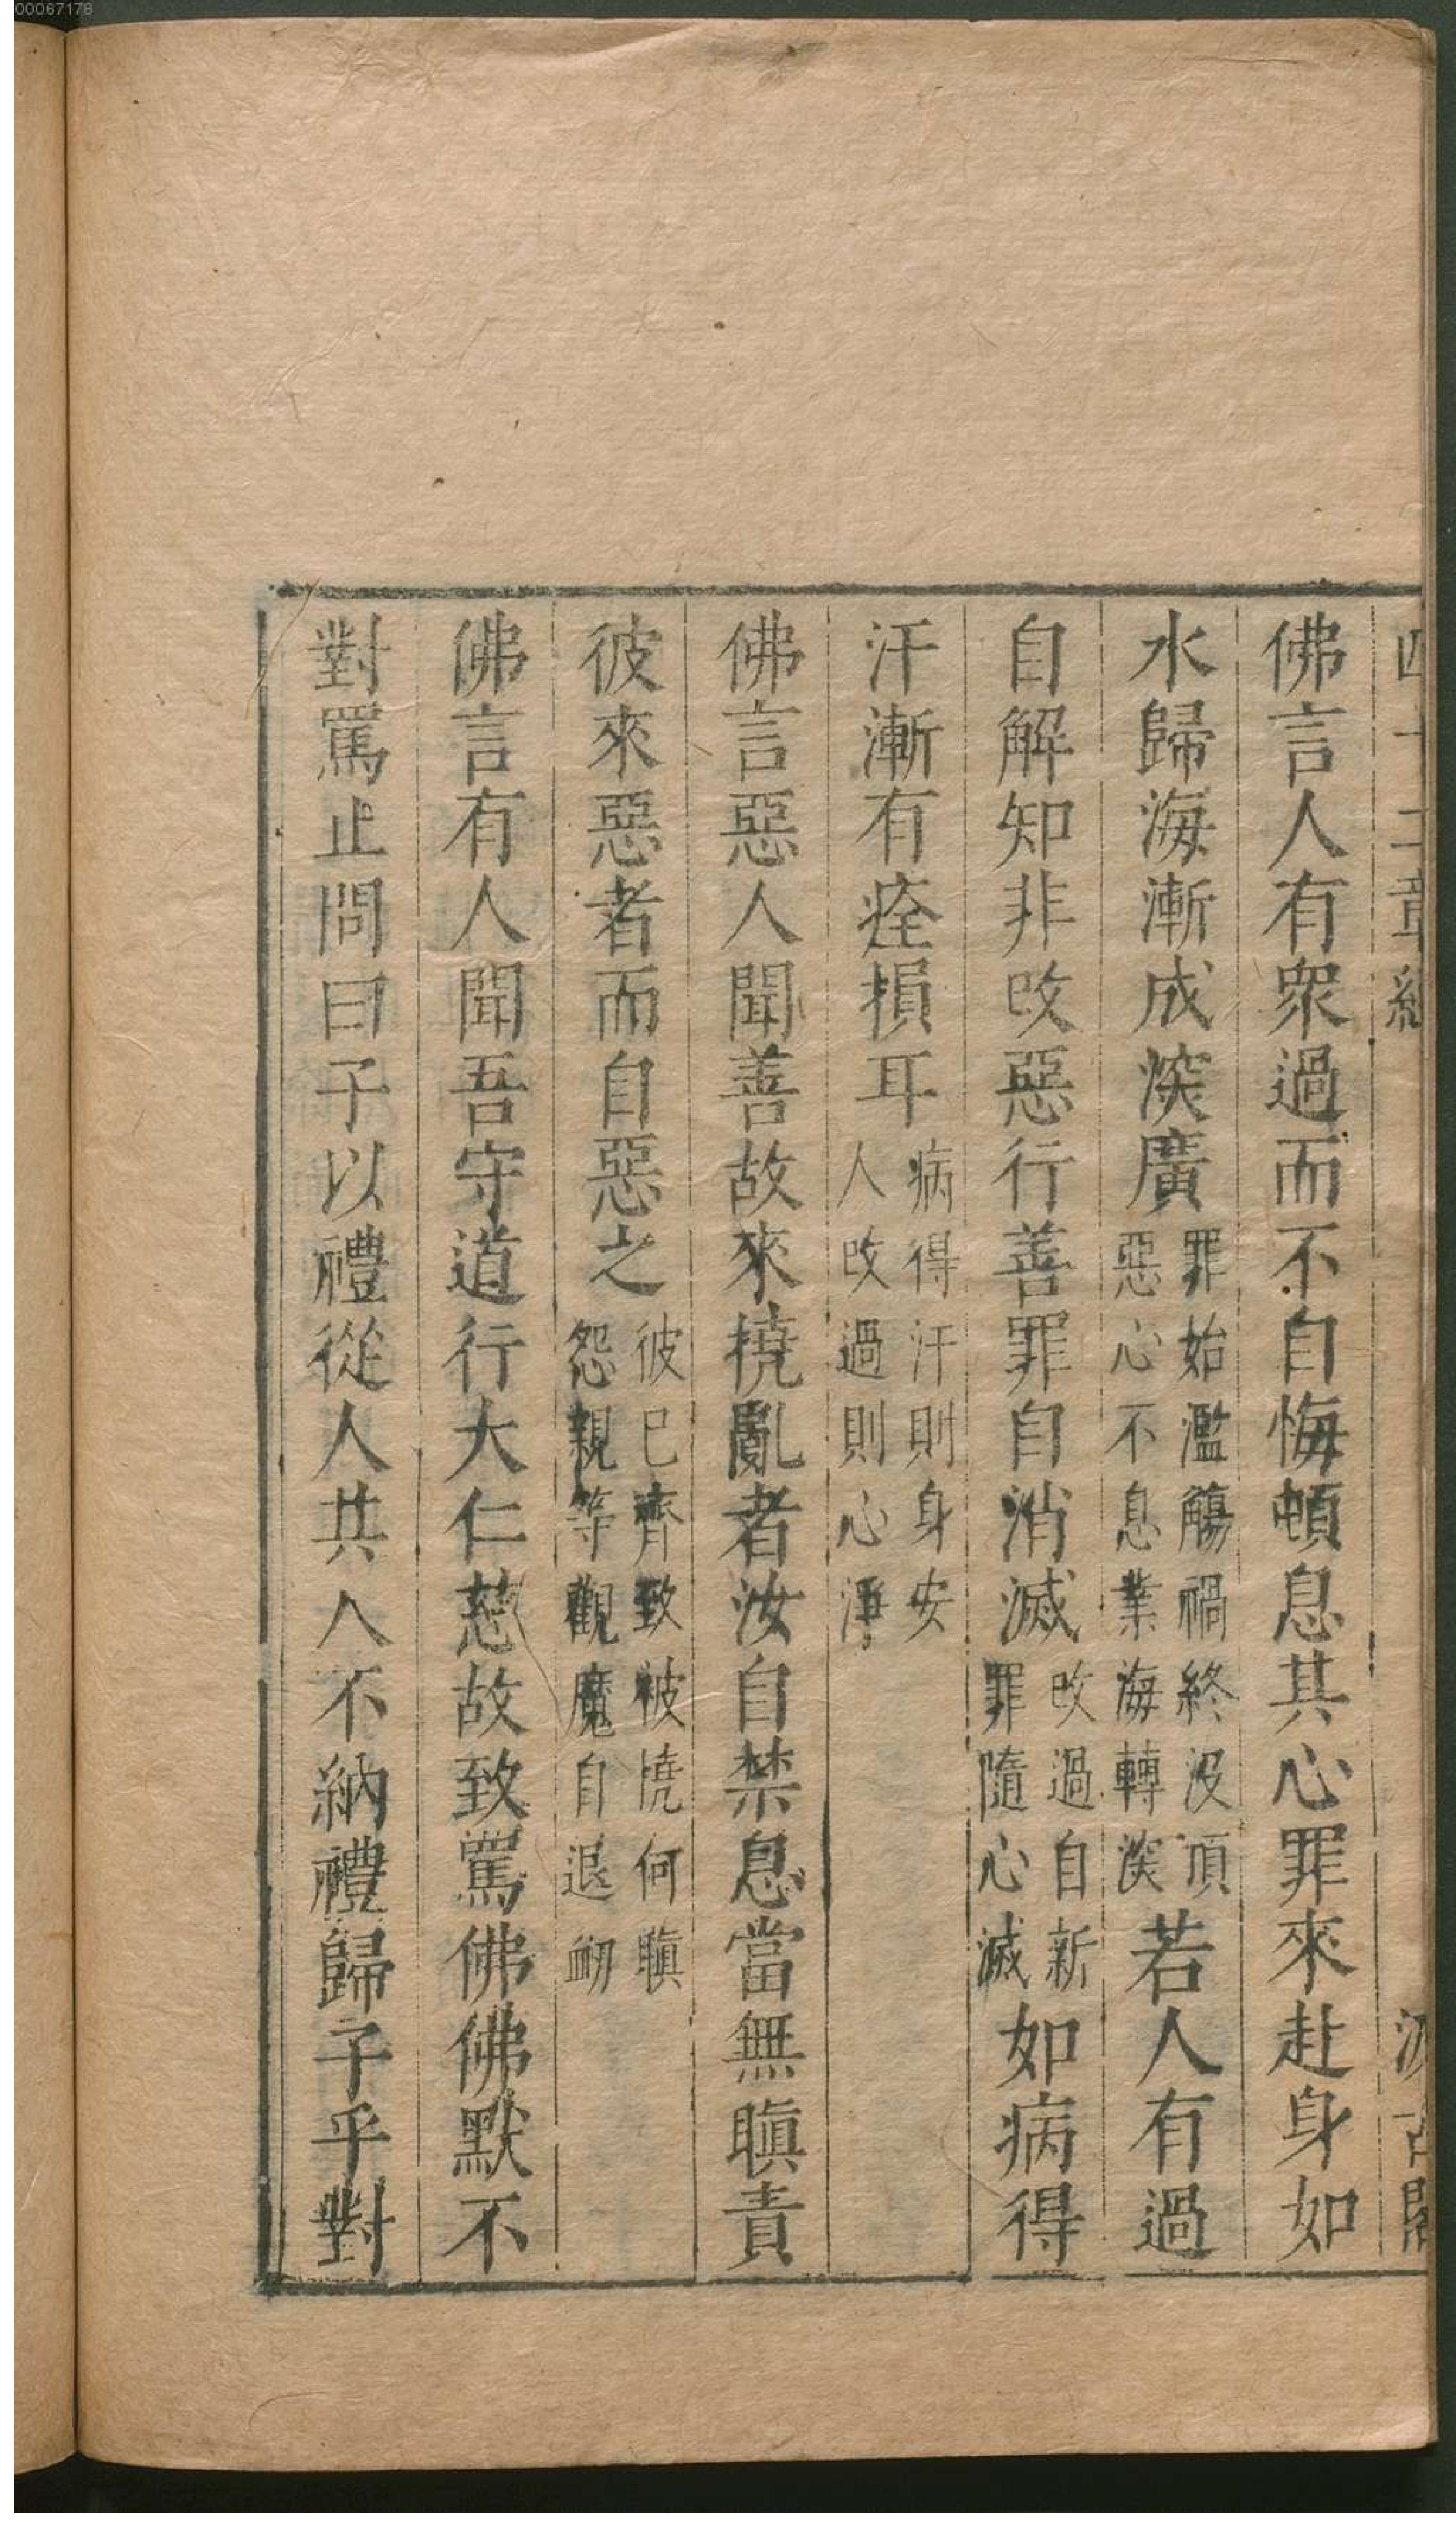 00067178
四十二章經
汲古閣
佛言人有眾過而不自悔頓息其心罪來赴身如
水歸海漸成深廣罪始濫觴禍終没頂惡心不息業海轉深若人有過
自解知非改惡行善罪自消滅改過自新罪隨心滅如病得
汗漸有痊損耳病得汗則身安人改過則心淨
佛言惡人聞善故來撓亂者汝自禁息當無瞋責
彼來惡者而自惡之彼已齊致被撓何瞋怨親等觀魔自退衂
佛言有人聞吾守道行大仁慈故致罵佛佛默不
對罵止問曰子以禮從人其人不納禮歸子乎對